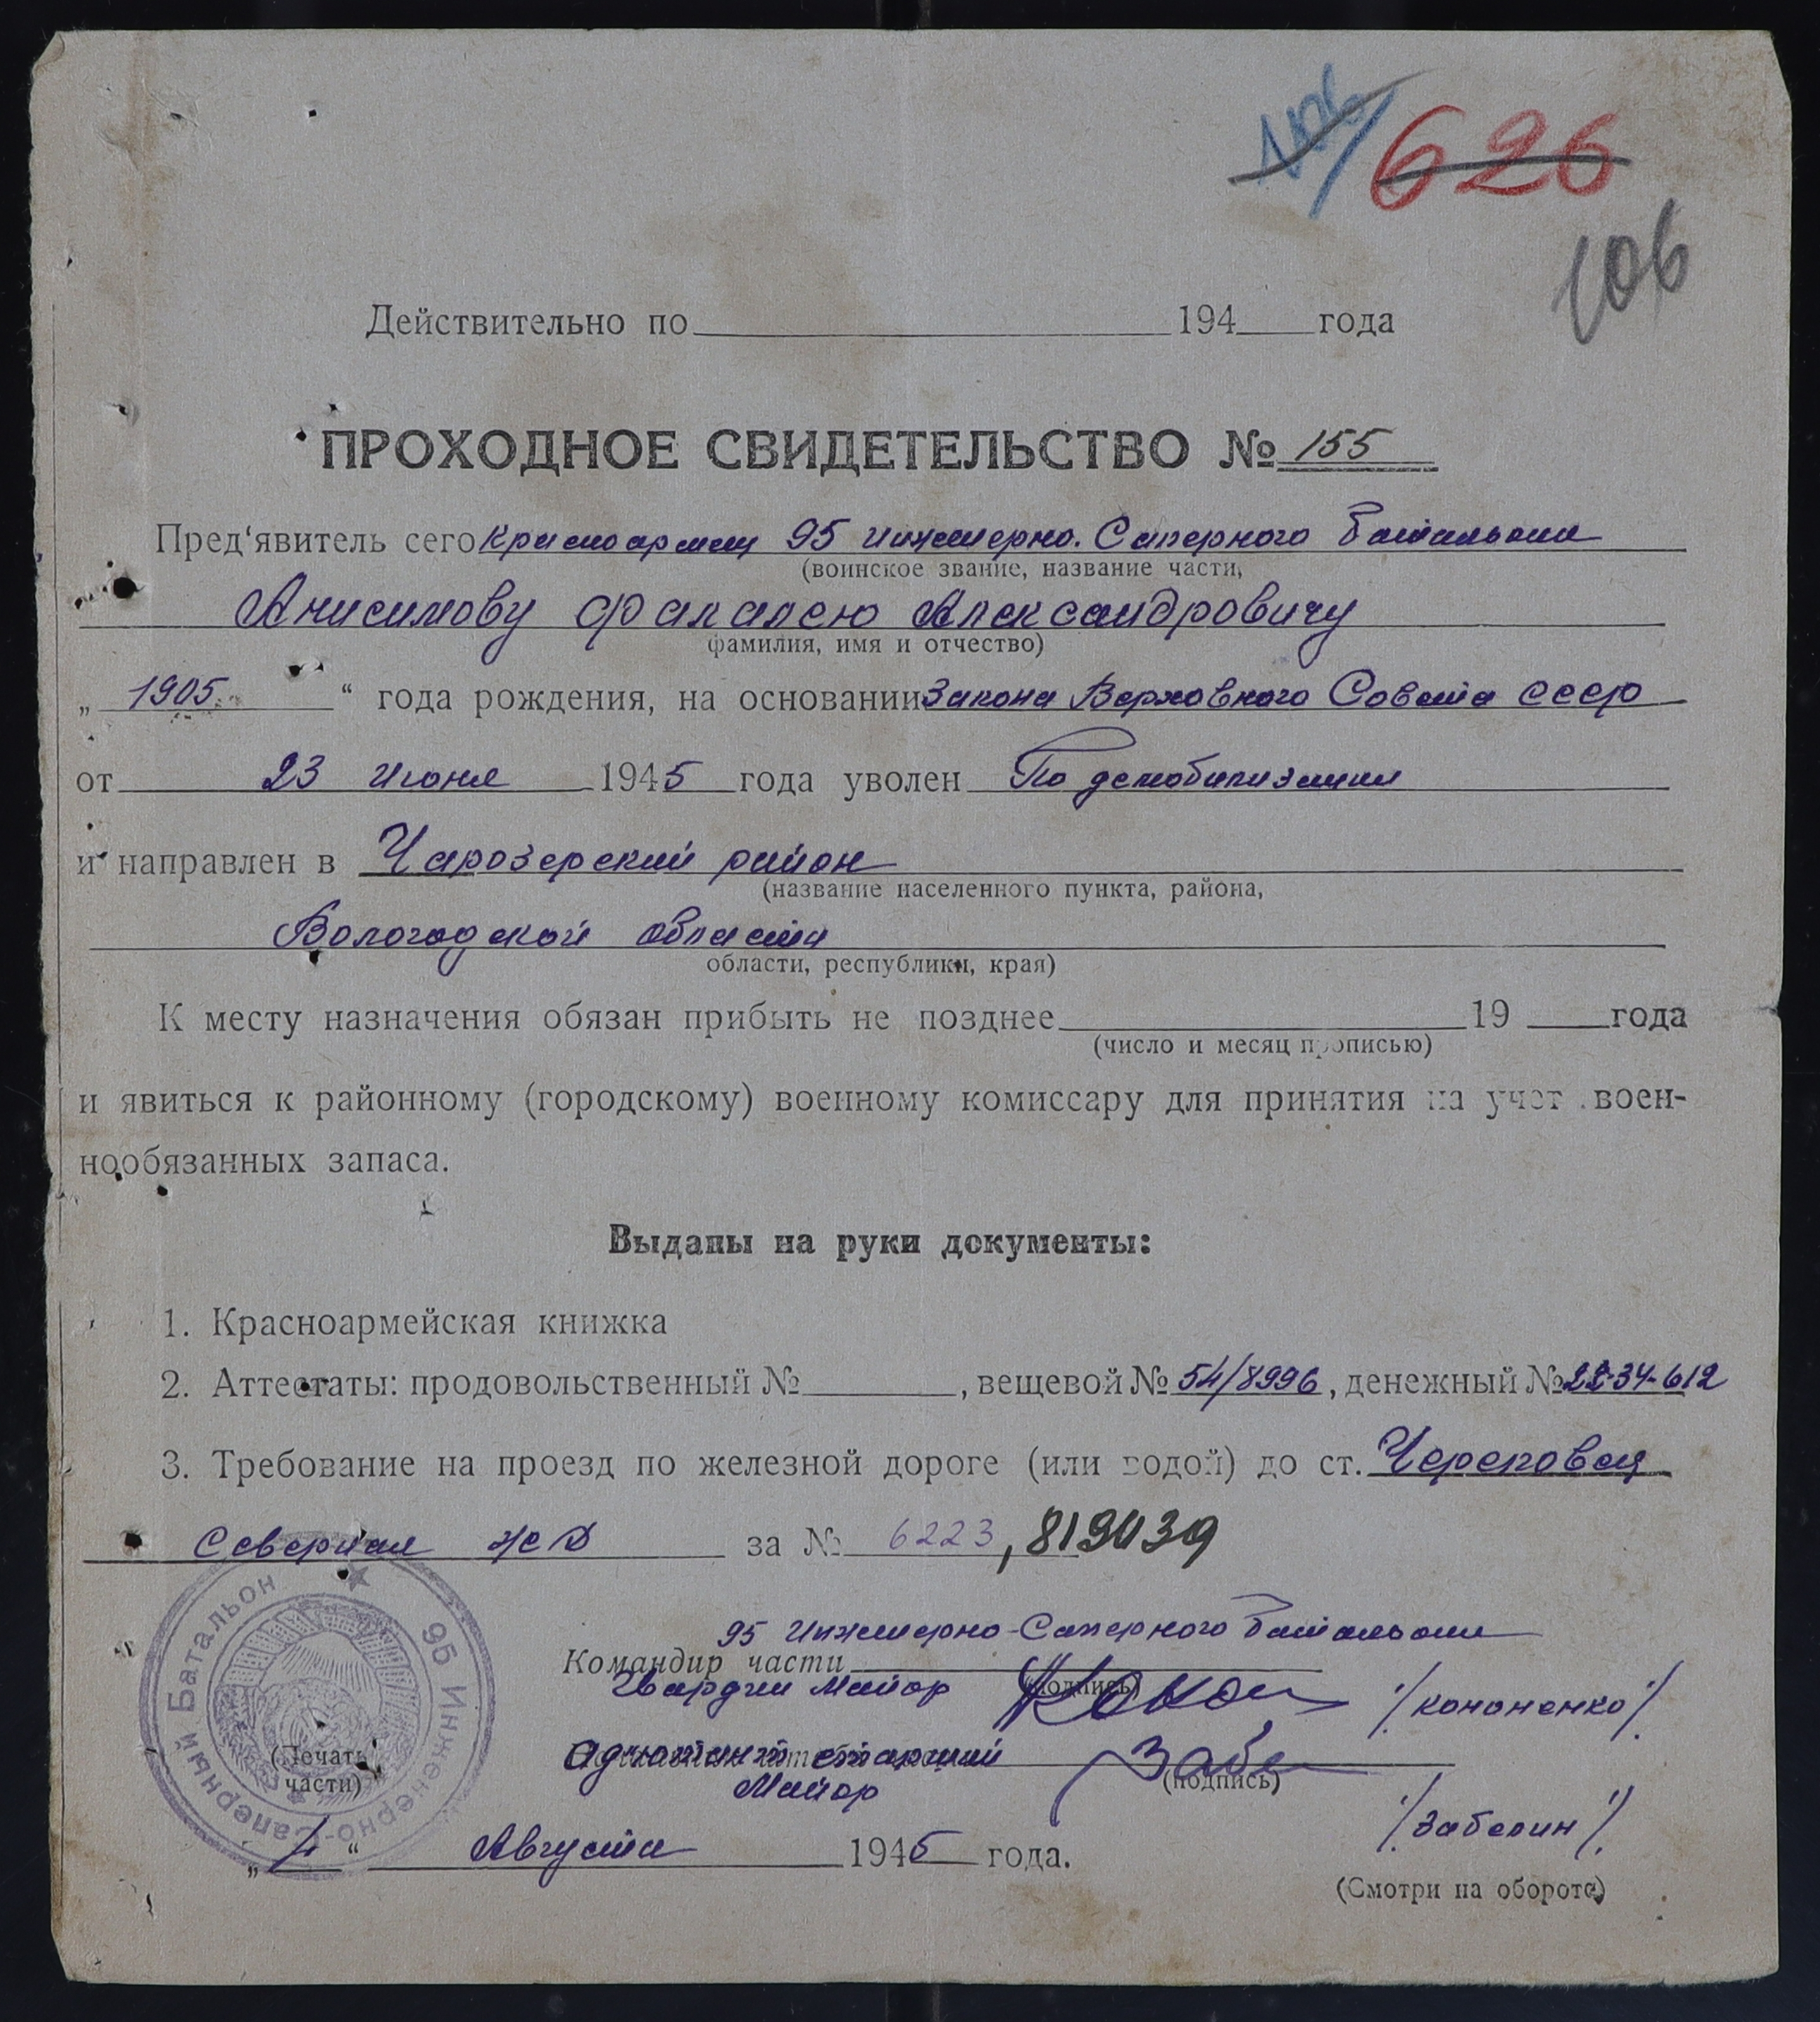 626
106
Действительно по 194 года
ПРОХОДНОЕ СВИДЕТЕЛЬСТВО № 155
Пред‘явитель сего красноармеец 95 инженерно. Саперного Батальона
(воинское звание, название части,
Анисимову Фалалею Александровичу
фамилия, имя и отчество)
„ 1905 “ года рождения, на основании Закона Верховного Совета СССР
от 23 Июня 1945 года уволен По демобилизации
и направлен в Чарозерский район
(название населенного пункта, района,
Вологодской области
области, республики, края)
К месту назначения обязан прибыть не позднее 19 года
(число и месяц прописью)
и явиться к районному (городскому) военному комиссару для принятия на учет воен-
нообязанных запаса.
Выданы на руки документы:
1. Красноармейская книжка
2. Аттестаты: продовольственный № , вещевой № 54/8996, денежный № 22-34-612
3. Требование на проезд по железной дороге (или водой) до ст. Череповец
Северная ЖД за № 6223, 819039
95 Инженерно-Саперного Батальона
Командир части
Гвардии Майор (подпись) /Кононенко/
Адъютант старший
Майор (подпись)
/Забелин/
(Печать части)
95 Инженерно-Саперный Батальон
„ “ Августа 1945 года.
(Смотри на обороте)